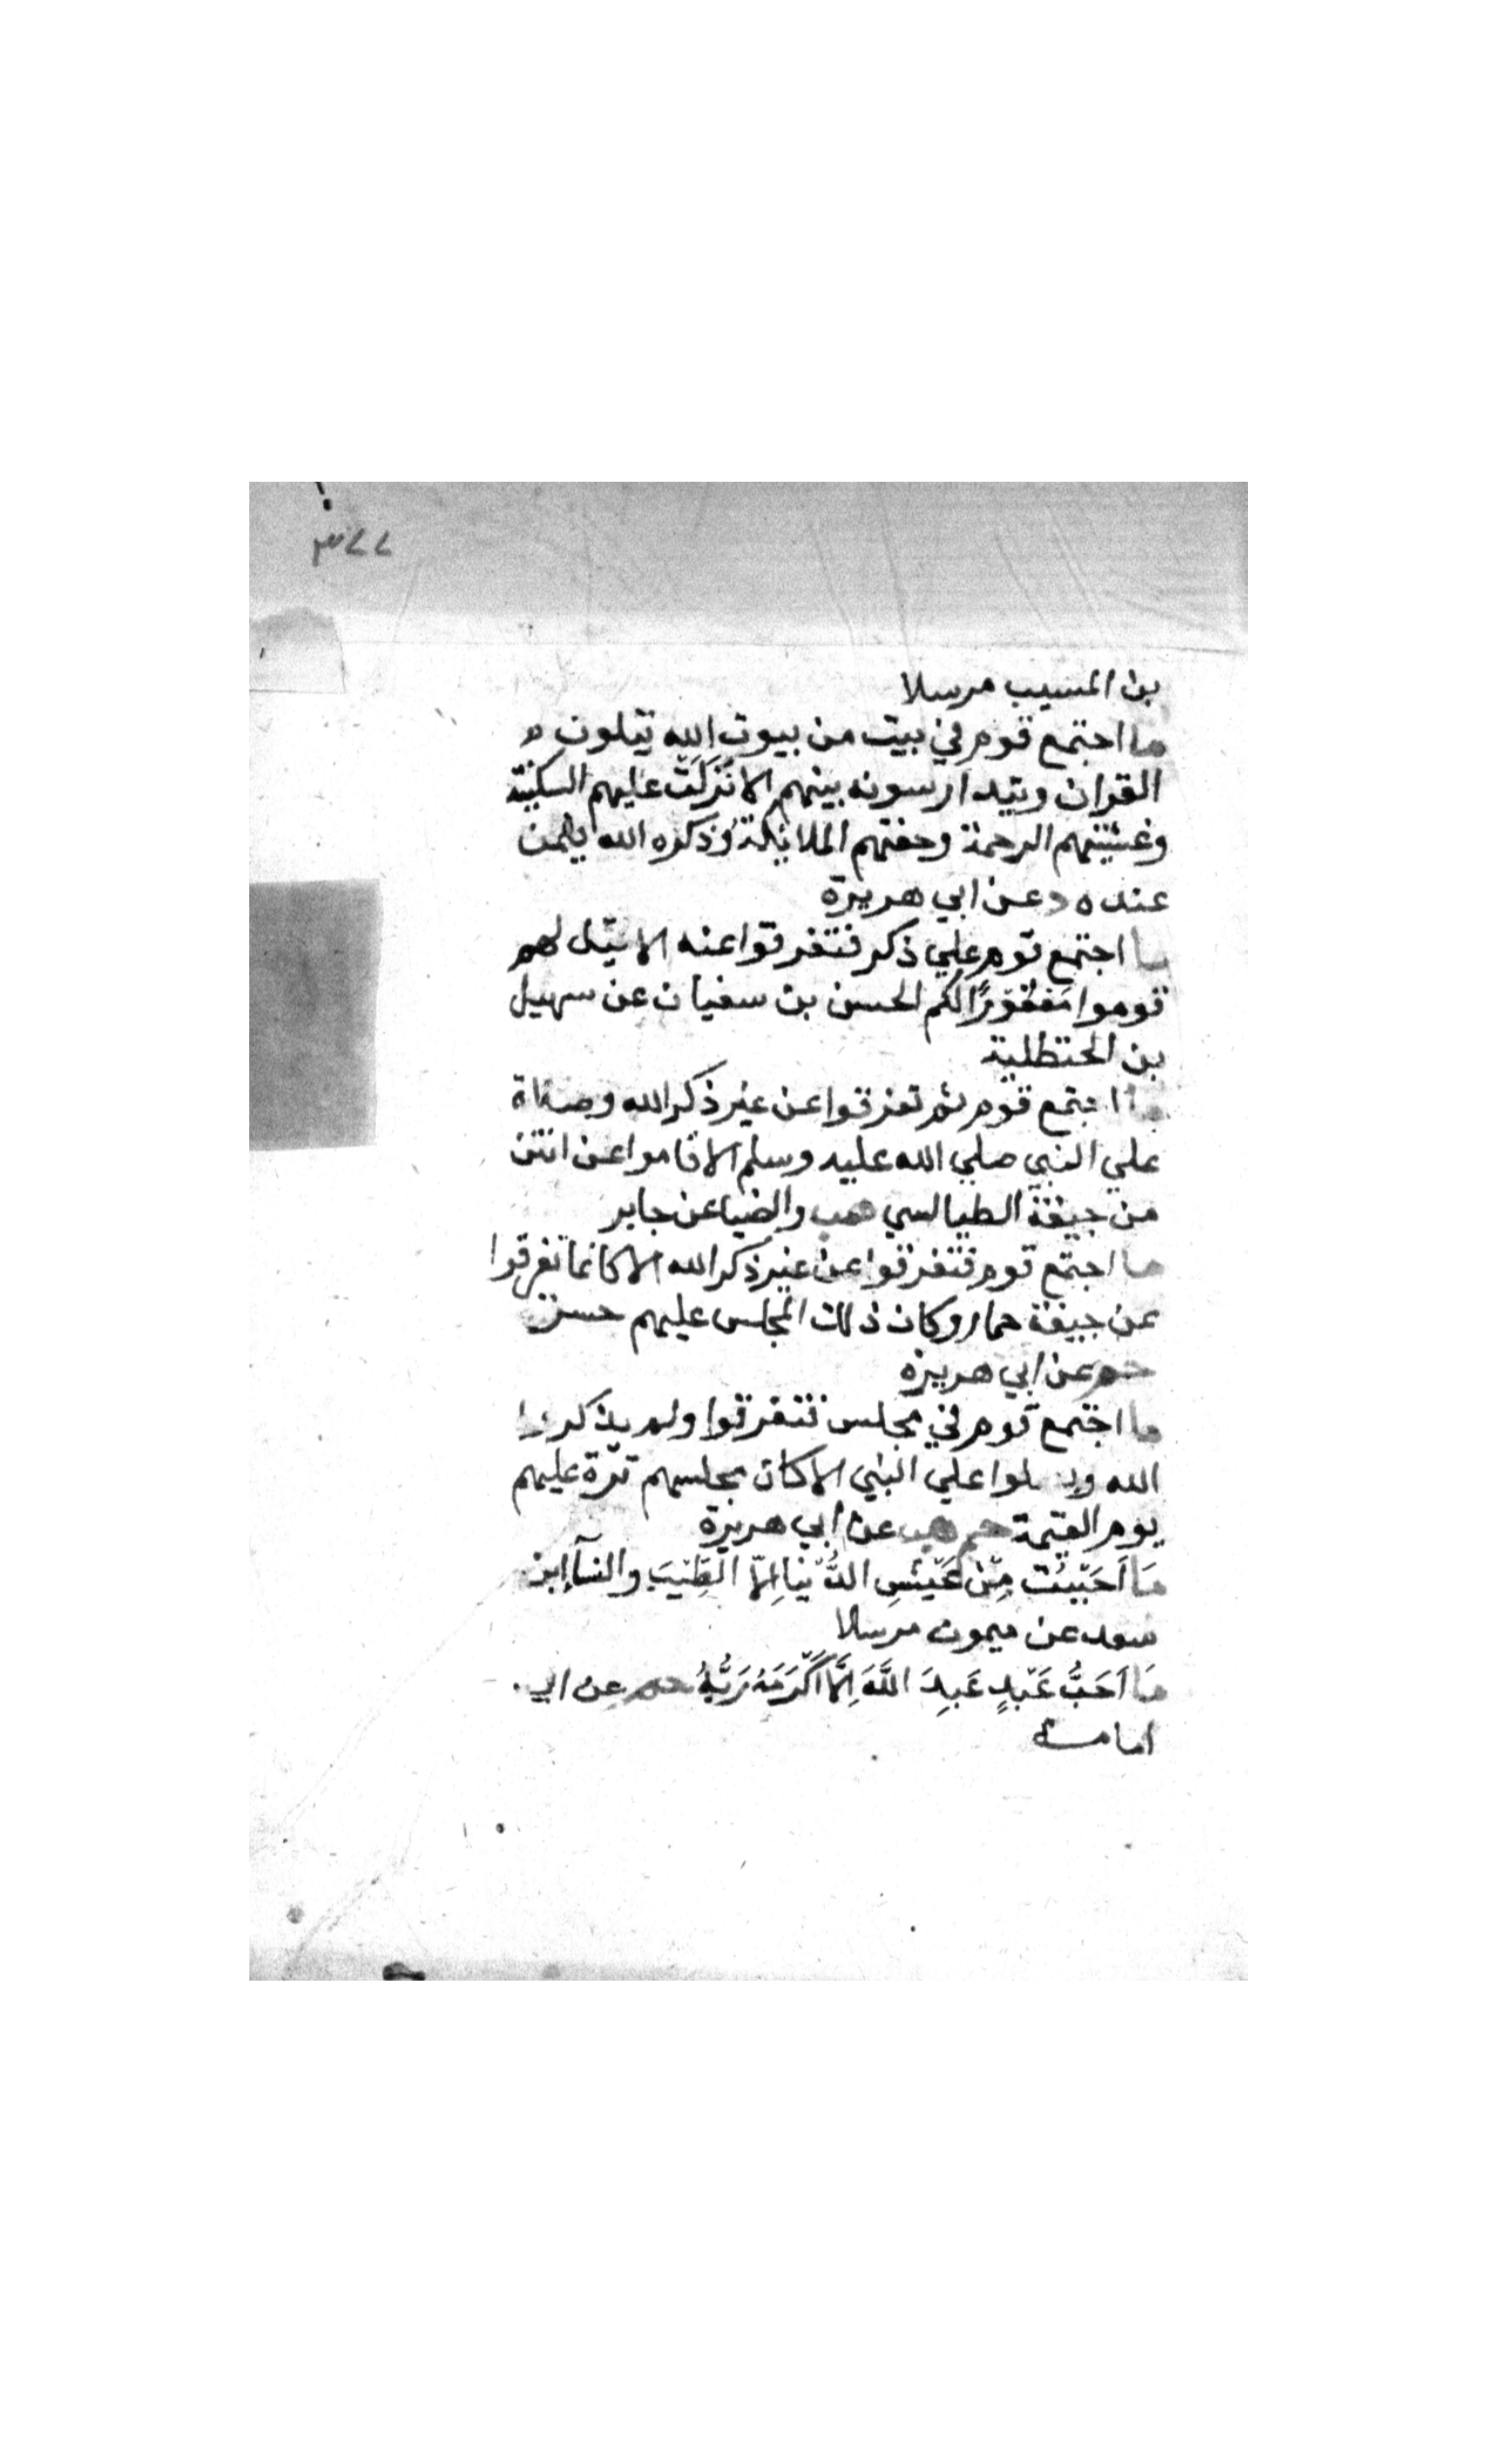 ٣٧٧
بن المسيب مرسلا
ما اجتمع قوم في بيت من بيوت الله يتلون
القران ويتدارسونه بينهم الا نَزَلَتْ عليهم السكينة
وغشيتهم الرحمة وحفتهم الملائكة وذكرهم الله فيمن
عنده د عن ابي هريرة
ما اجتمع قوم علي ذكر فتفرقوا عنه الا قيل لهم
قوموا مَغفُوْرًا لكم الحسن بن سفيان عن سهيل
بن الحنظلية
ما اجتمع قوم ثم تفرقوا عن غير ذكر الله وصلاة
علي النبي صلي الله عليه وسلم الا قاموا عن انتن
من جيفة الطيالسي هب والضيا عن جابر
ما اجتمع قوم فتفرقوا عن غير ذكر الله الا كانما تفرقوا
عن جيفة حمار وكان ذلك المجلس عليهم حسرة
حم عن ابي هريرة
ما اجتمع قوم في مجلس فتفرقوا ولم يذكروا
الله و علي النبي الا كان مجلسهم ترة عليهم
يوم القيمة حم هب عن ابي هريرة
مَا اَحَبَبْت مِنْ عَيْشِ الدُّنْيا اِلاّ الطِّيْبَ والنسآ ابن
سعد عن ميمون مرسلا
مَا اَحَبَّ عَبْدٍ عَبِدَ اللَّهَ اِلَّا اَكْرَمَهُ رَبُّهُ حم عن ابي
امامة